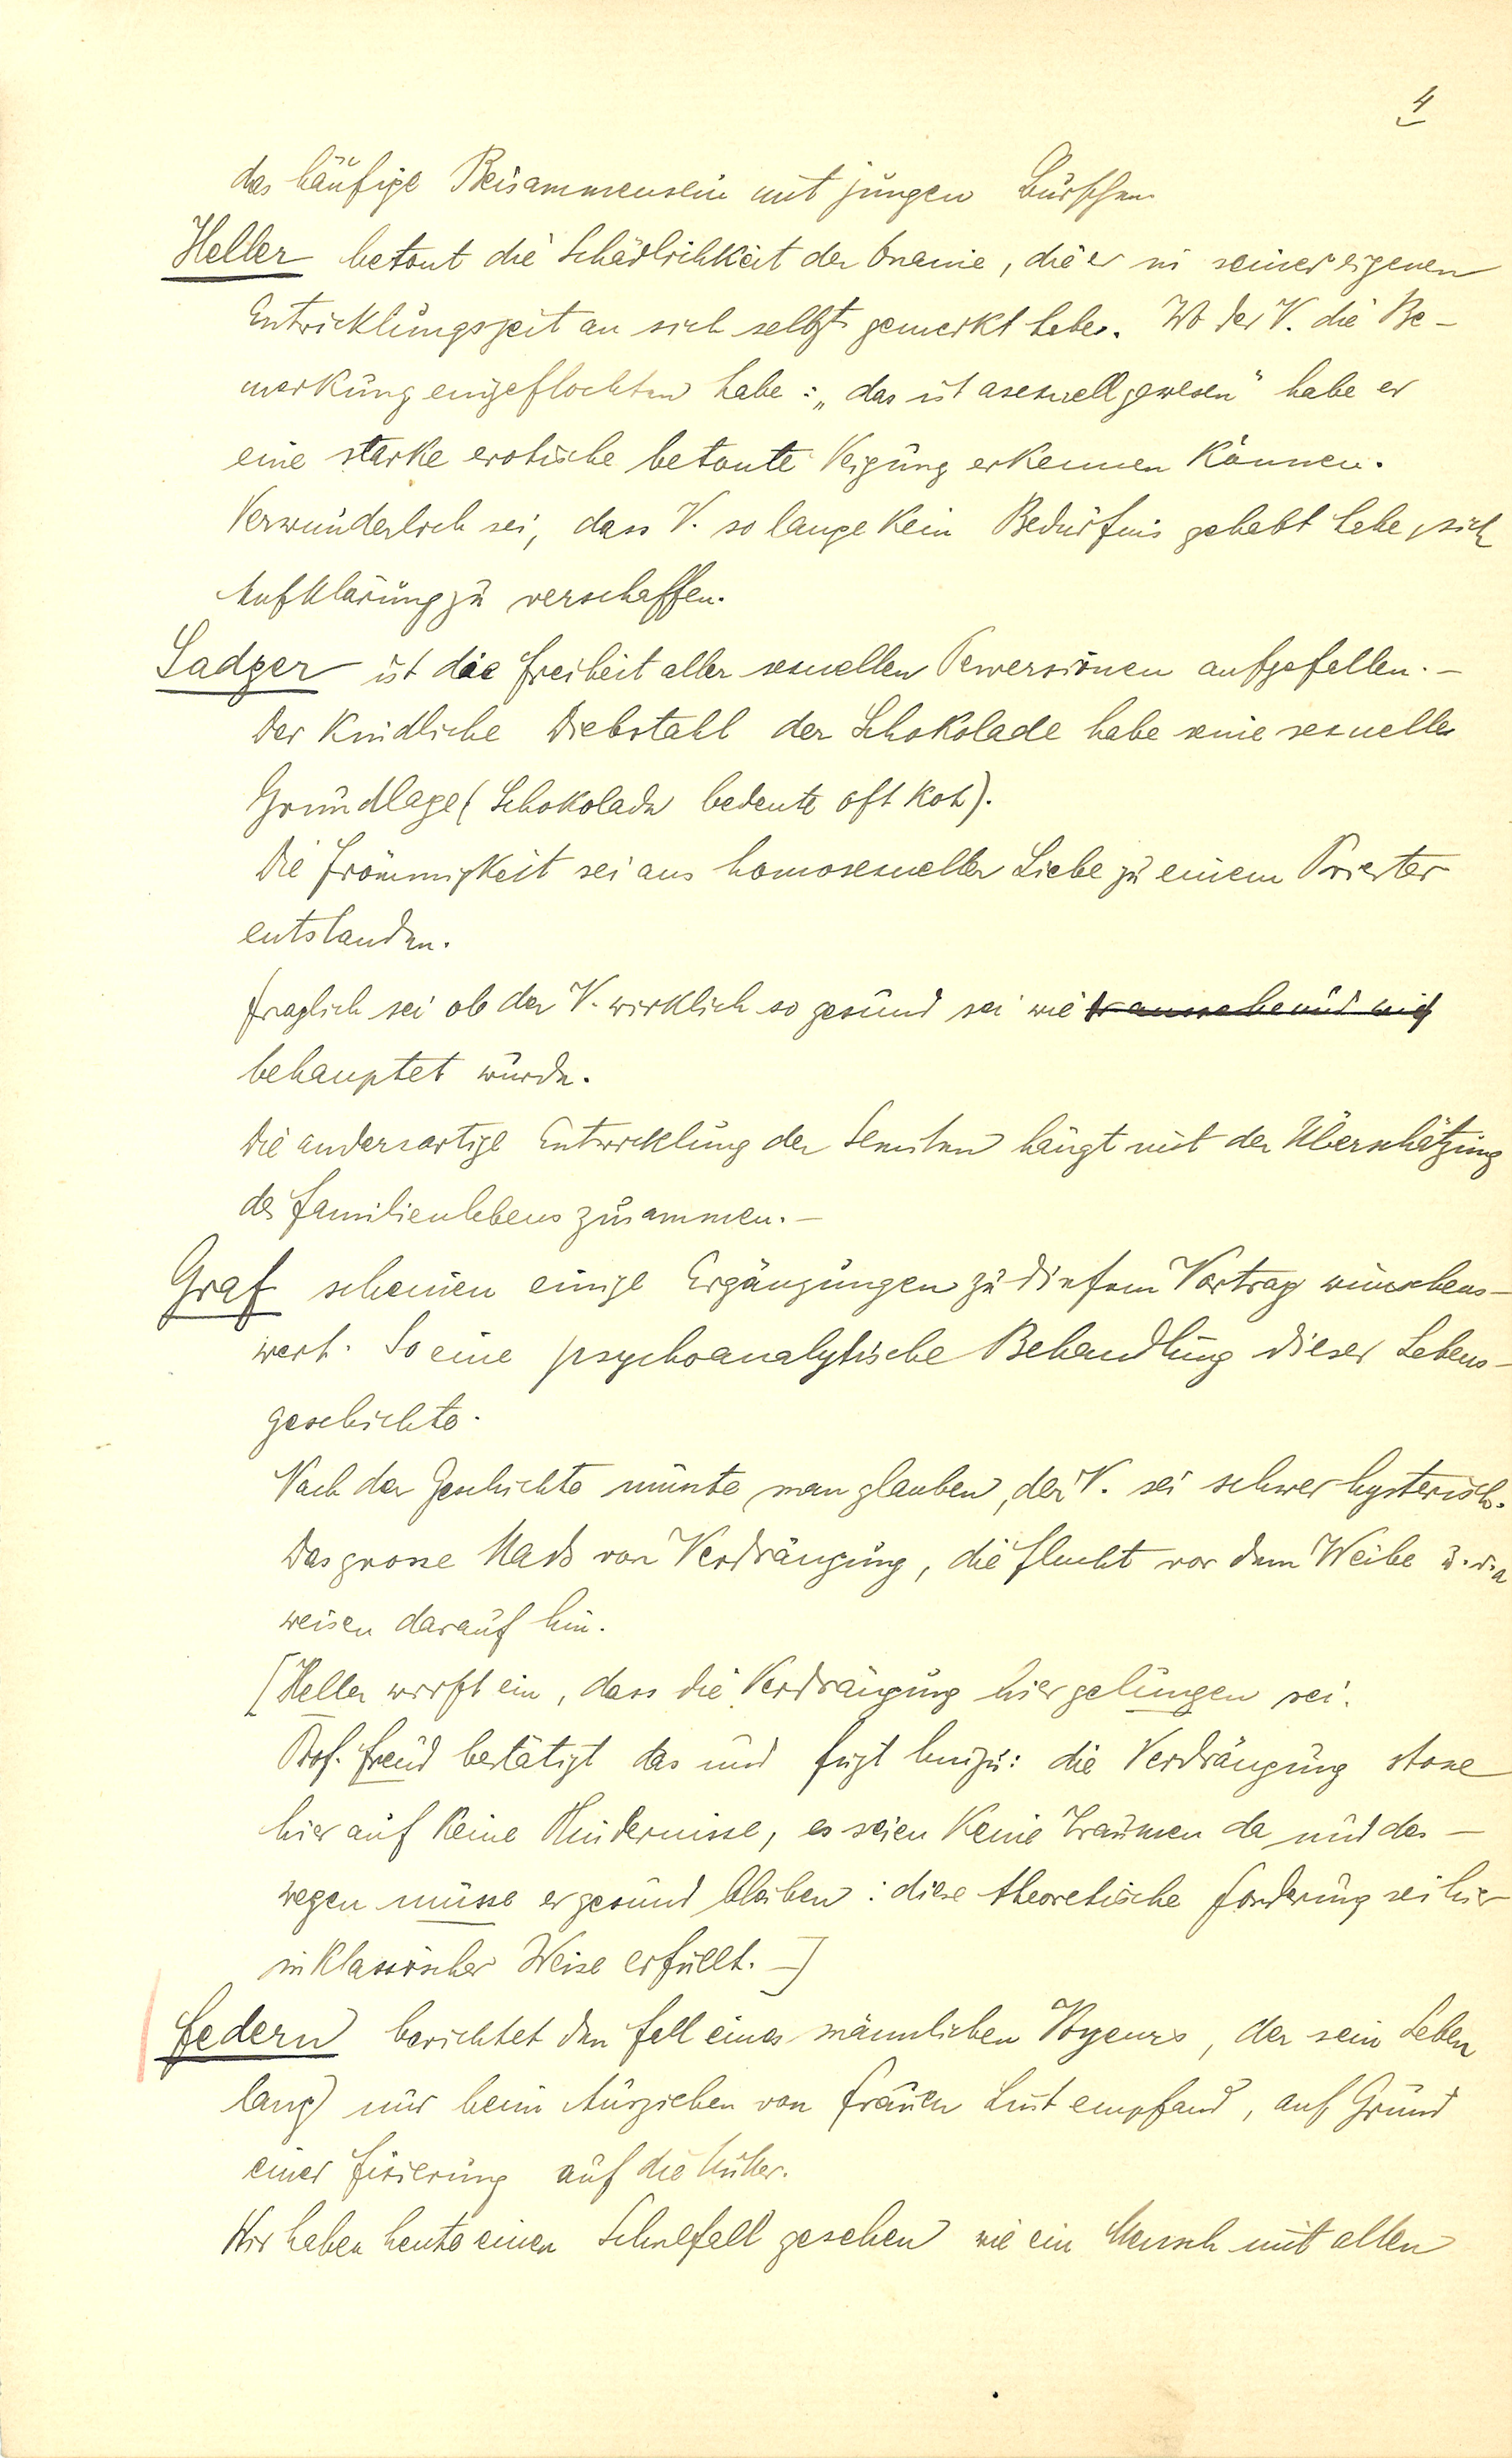 4
das häufige Beisammensein mit jungen Burschen
Heller betont die Schädlichkeit der Onanie, die er in seiner eigenen
Entwicklungszeit an sich selbst gemerkt habe. Wo der V. die Be-
merkung eingeflochten habe: „das ist asexuell gewesen" habe er
eine starke erotische betonte Neigung erkennen können.
Verwunderlich sei, dass V. so lange kein Bedürfnis gehabt habe, sich
Aufklärung zu verschaffen.
Sadger ist die Freiheit aller sexuellen Perversionen aufgefallen. –
Der kindliche Diebstahl der Schokolade habe seine sexuelle
Grundlage (Schokolade bedeute oft Kot).
Die Frömmigkeit sei aus homosexueller Liebe zu einem Priester
entstanden.
Fraglich sei ob der V. wirklich so gesund sei wie
behauptet wurde.
Die andersartige Entwicklung der Semiten hängt mit der Überschätzung
des Familienlebens zusammen. –
Graf scheinen einige Ergänzungen zu diesem Vortrag wünschens-
wert. So eine psychoanalytische Behandlung dieser Lebens-
geschichte.
Nach der Geschichte müsste man glauben, der V. sei schwer hysterisch.
Das grosse Mass von Verdrängung, die Flucht vor dem Weibe u. v. a
weisen darauf hin.
[Heller wirft ein, dass die Verdrängung hier gelungen sei.
Prof. Freud bestätigt das und fügt hinzu: die Verdrängung stosse
hier auf keine Hindernisse, es seien keine Traumen da und des-
wegen müsse er gesund bleiben: diese theoretische Forderung sei hier
in klassischer Weise erfüllt. –]
Federn berichtet den Fall eines männlichen Voyeurs, der sein Leben
lang nur beim Ausziehen von Frauen Lust empfand, auf Grund
einer Fixierung auf die Mutter.
Wir haben heute einen Schulfall gesehen wie ein Mensch mit allen